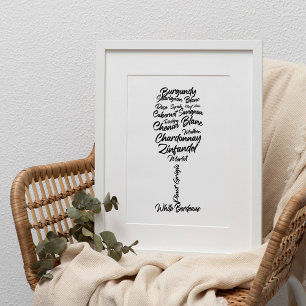 Burgundy
Sauvignon Blanc
Rosé Syrah
Cabernet Sauvignon
Riesling
Chenin Blanc
Malbec
Chardonnay
Zinfandel
Merlot
Pinot Grigio
White Bordeaux